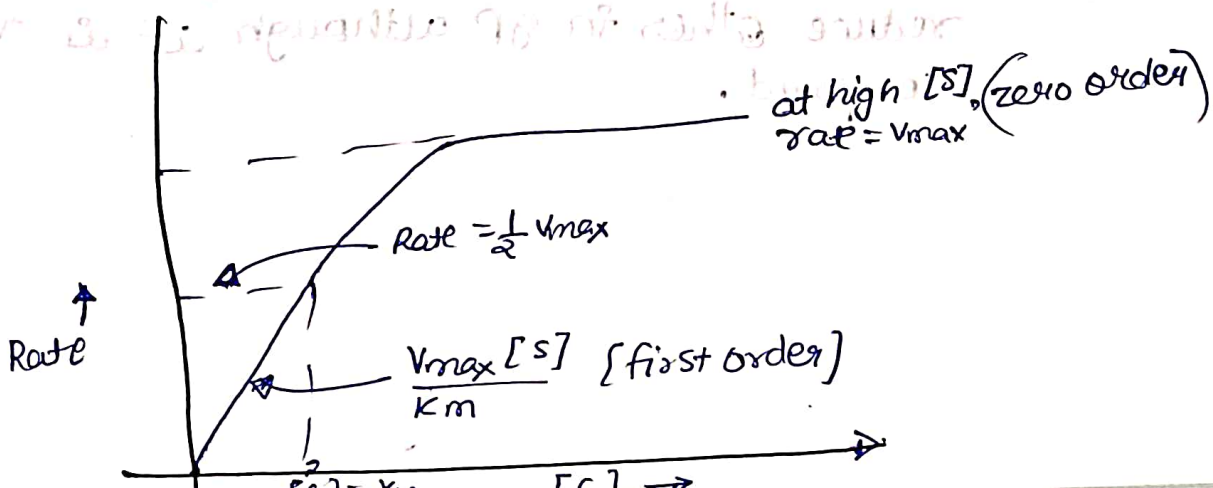 at high [S], (zero order)
rate = Vmax
Rate = 1/2 Vmax
Rate
Vmax [S] {first order]
Km